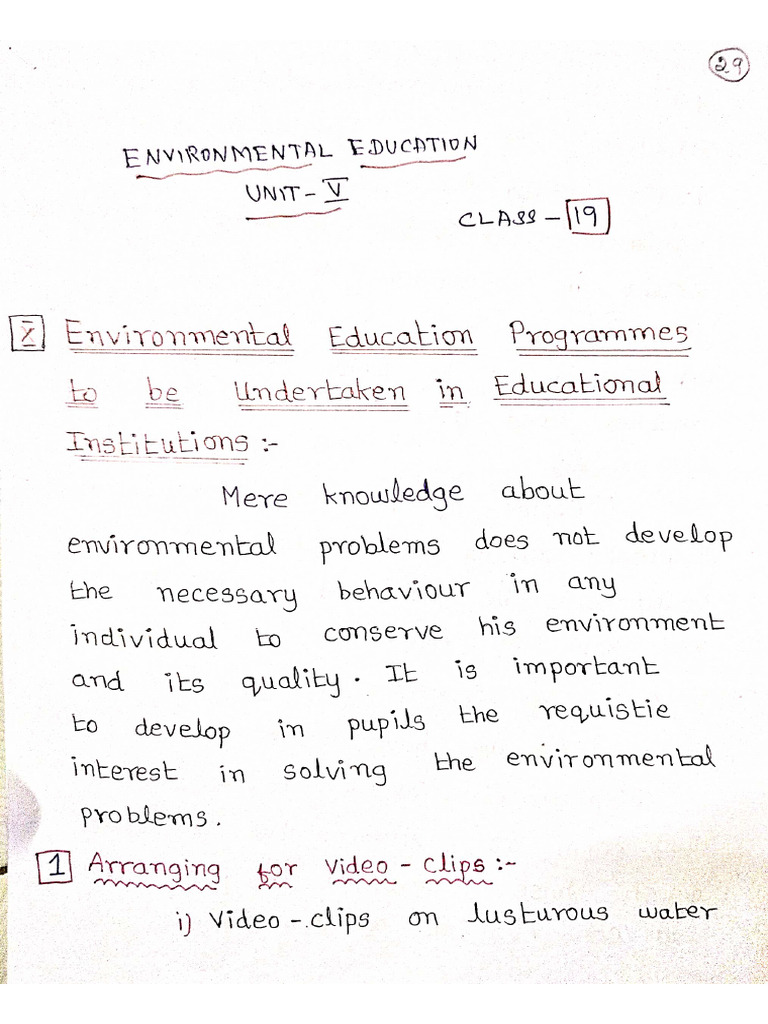 29
ENVIRONMENTAL EDUCATION
UNIT - V
CLASS - 19
X Environmental Education Programmes
to be Undertaken in Educational
Institutions :-
Mere knowledge about
environmental problems does not develop
the necessary behaviour in any
individual to conserve his environment
and its quality. It is important
to develop in pupils the requistie
interest in solving the environmental
problems.
1 Arranging for video - clips :-
i) Video - clips on lusturous water